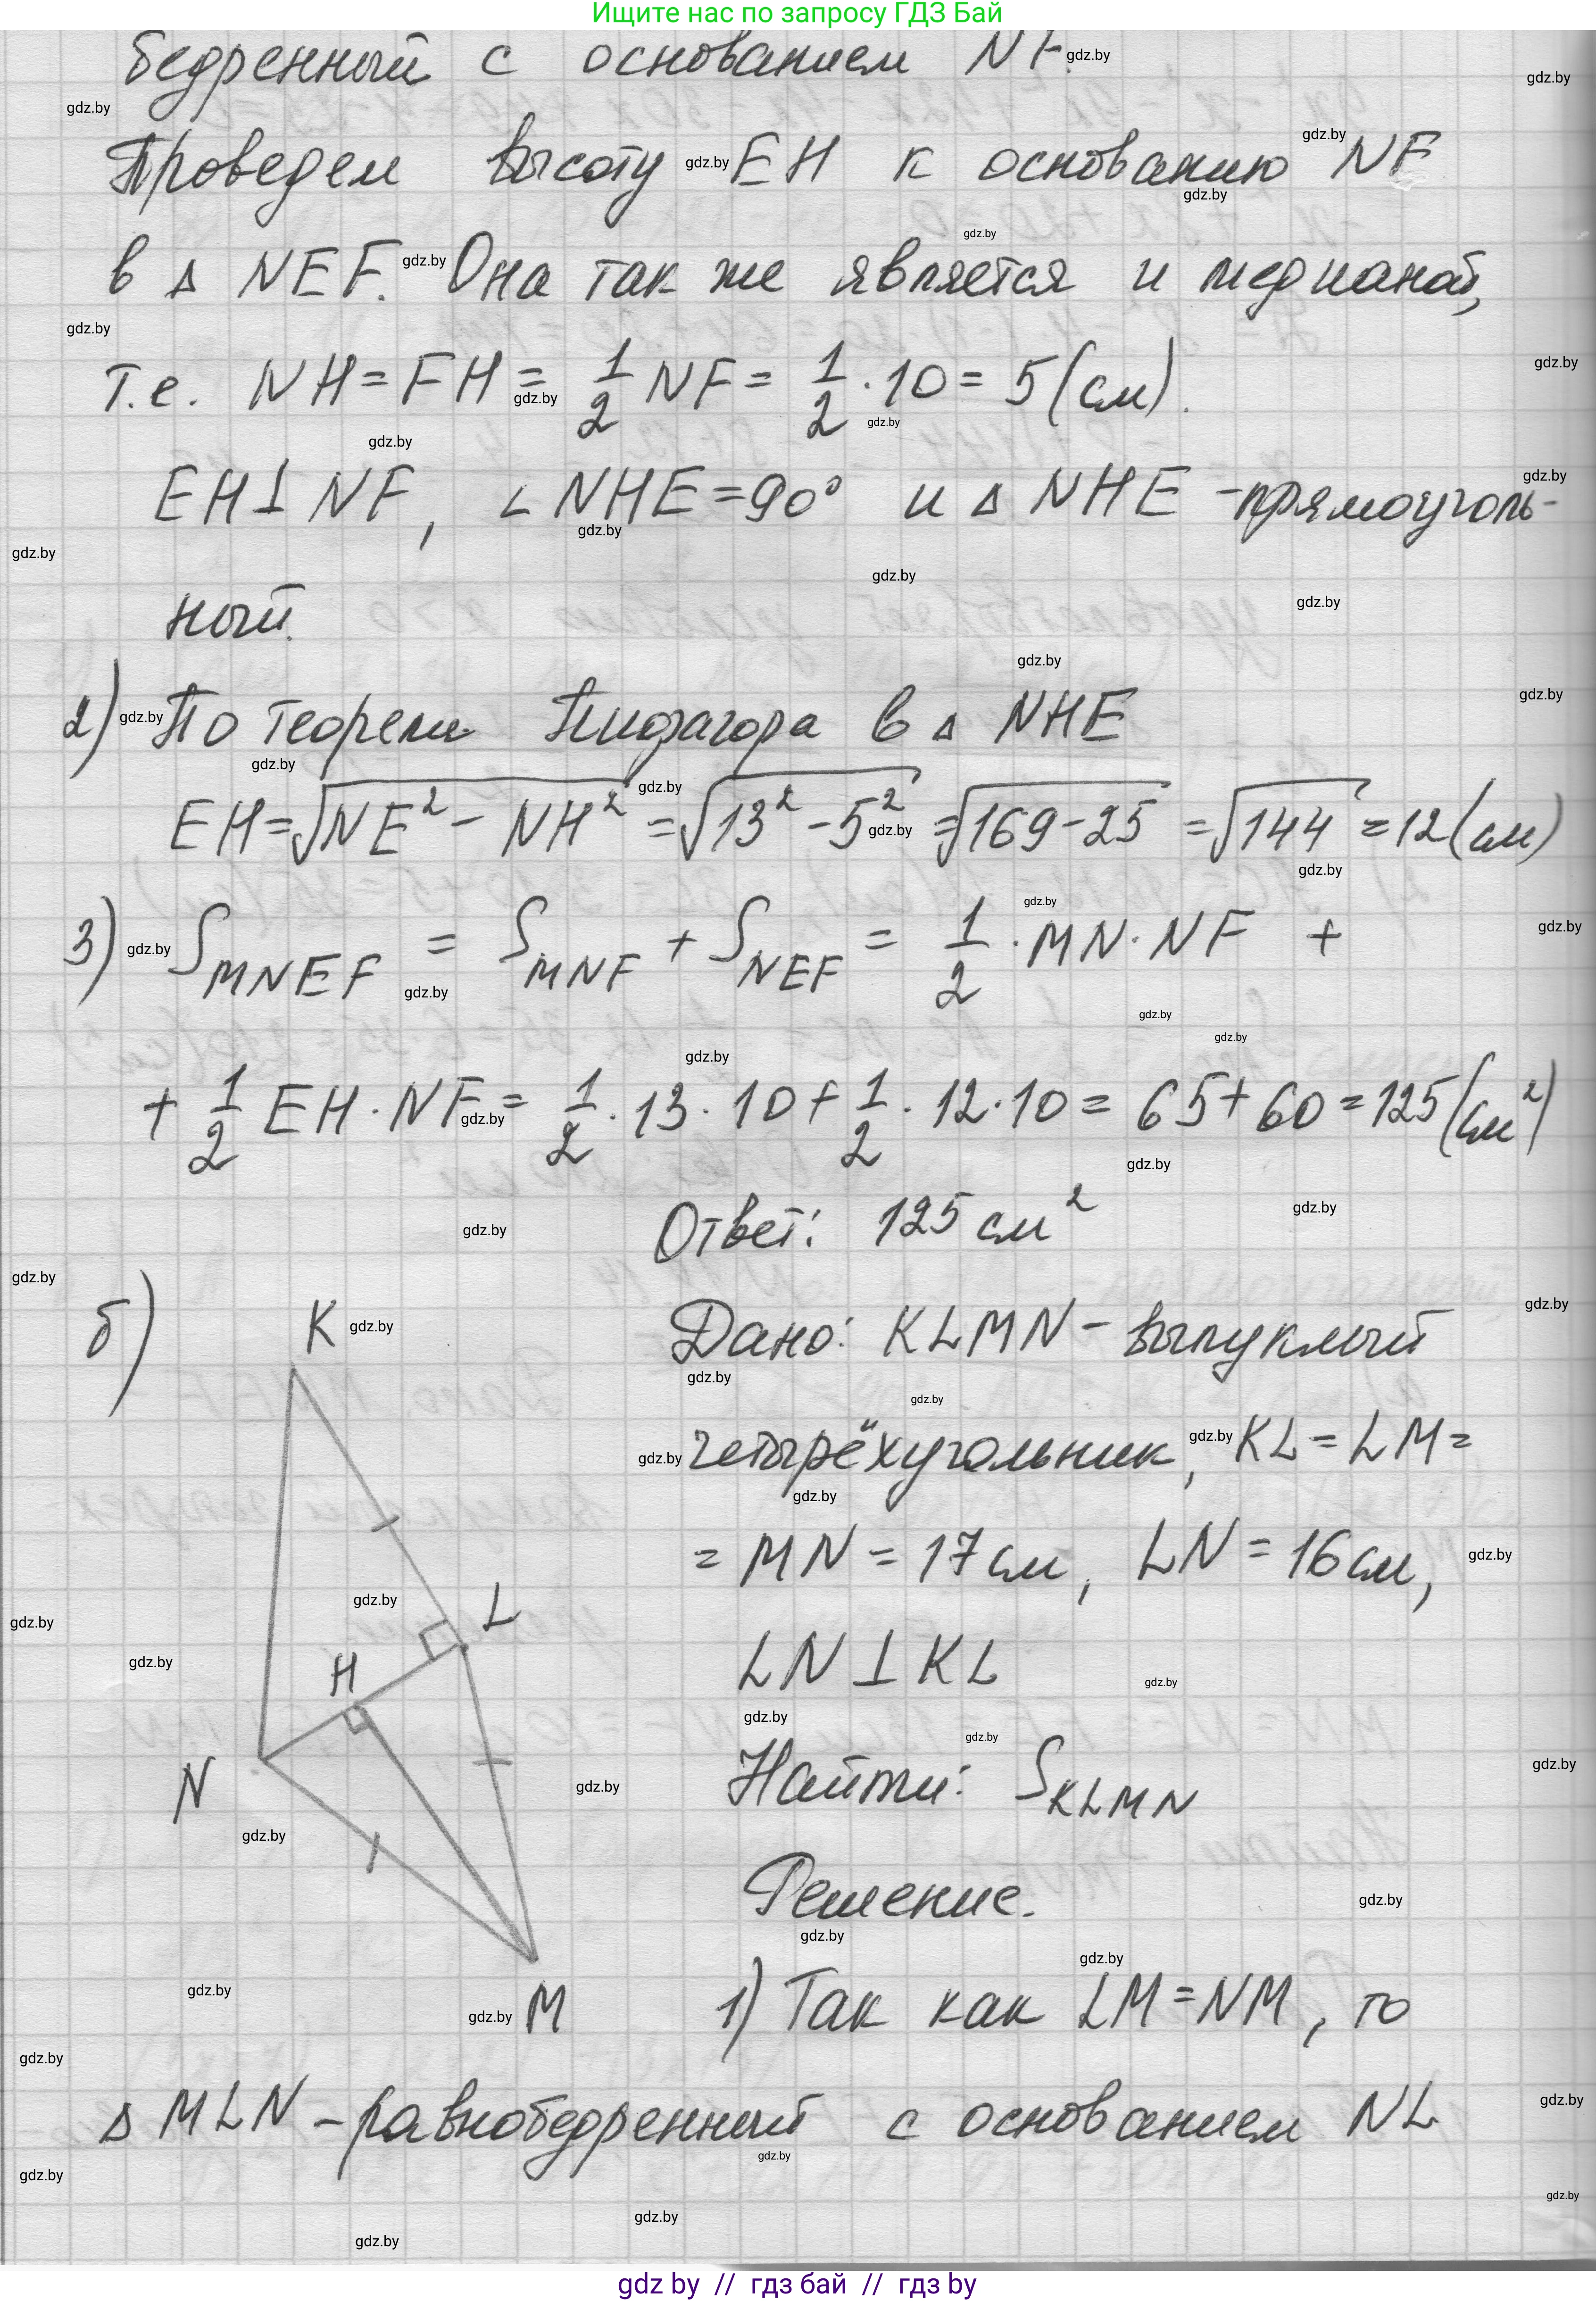 Ищите нас по запросу ГДЗ Бай
бедренный с основанием NF.
Проведем высоту EH к основанию NF
в Δ NEF. Она так же является и медианой,
т.е. NH = FH = 1/2 NF = 1/2 · 10 = 5 (см).
EH ⊥ NF, ∠ NHE = 90° и Δ NHE - прямоуголь-
ный.
2) По теореме Пифагора в Δ NHE
EH = √(NE² - NH²) = √(13² - 5²) = √(169 - 25) = √144 = 12 (см)
3) S_MNEF = S_MNF + S_NEF = 1/2 · MN · NF +
+ 1/2 EH · NF = 1/2 · 13 · 10 + 1/2 · 12 · 10 = 65 + 60 = 125 (см²)
Ответ: 125 см²
б) K
Дано: KLMN - выпуклый
четырёхугольник, KL = LM =
= MN = 17 см, LN = 16 см,
L
LN ⊥ KL
H
N
Найти: S_KLMN
Решение.
M
1) Так как LM = NM, то
Δ MLN - равнобедренный с основанием NL
gdz.by
gdz by // гдз бай // гдз by